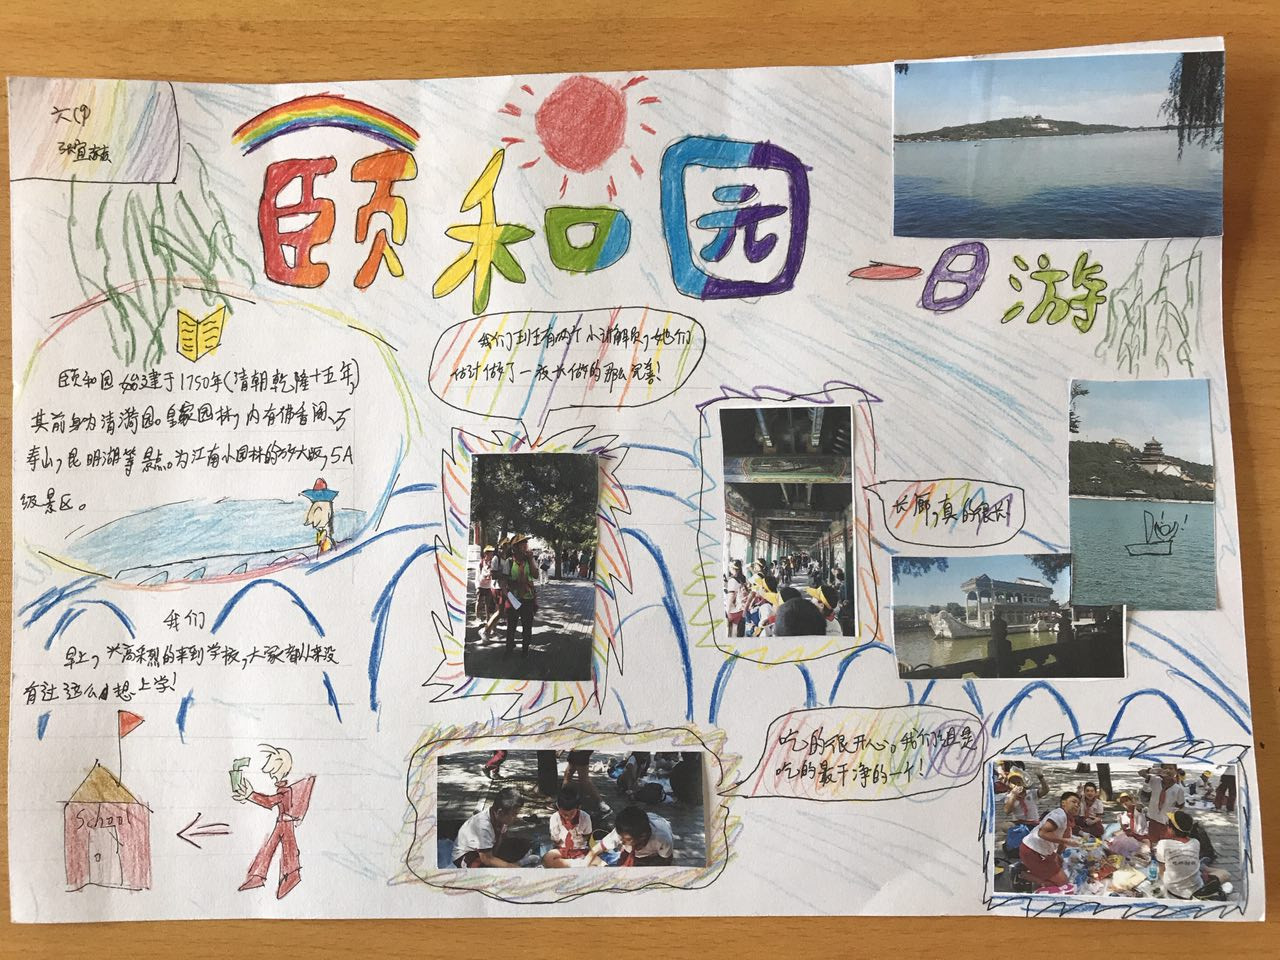 六(4)
张宜
颐和园
一日游
颐和园始建于1750年(清朝乾隆十五年),
其前身为清漪园。皇家园林,内有佛香阁、万
寿山,昆明湖等景点。为江南小园林的放大版,5A
级景区。
我们班有两个小讲解员,她们
估计做了一夜才做的那么完善!
长廊,真的很长!
我们
早上,兴高采烈的来到学校,大家都从来没
有过这么想上学!
School
吃的很开心。我们组是
吃的最干净的一个!